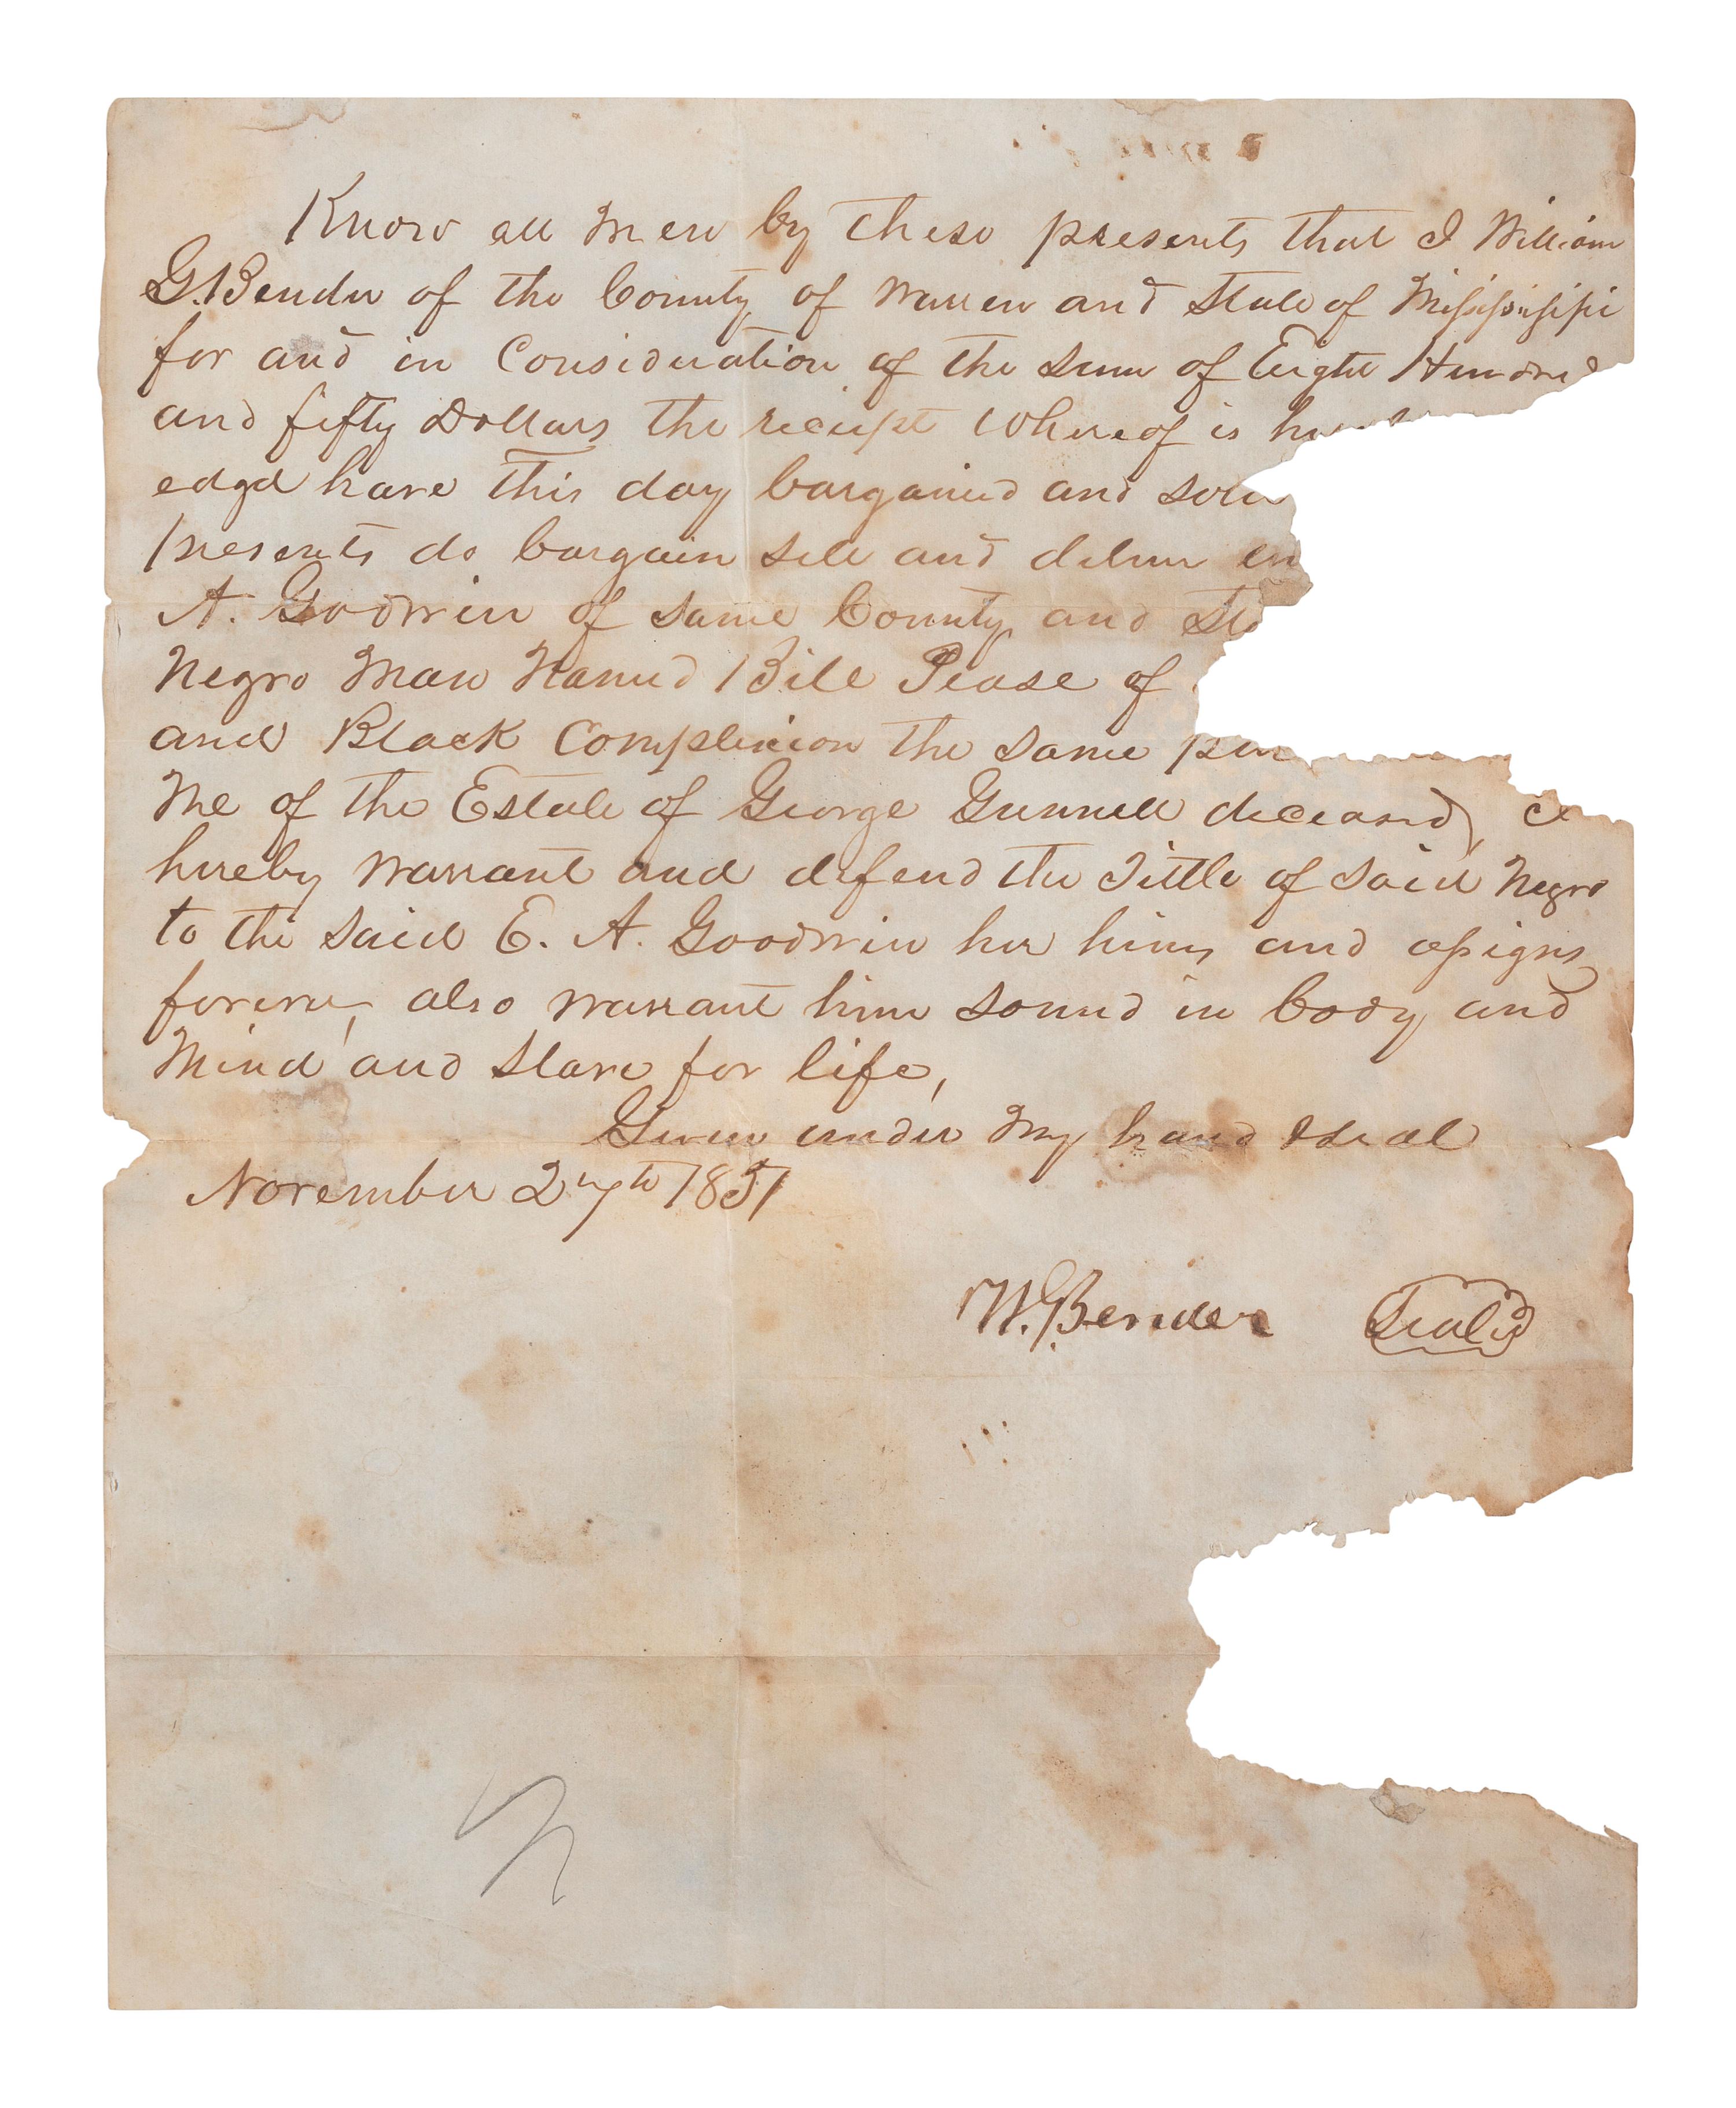 Know all Men by these presents that I William
G. Bender of the County of Warren and State of Missisippi
for and in Consideration of the Sum of Eight Hundred
and fifty Dollars the reciept Whereof is
edgd have this day bargained and
presents do bargain sell and deliver
A. Goodwin of same County and
Negro Man Named Bill Pease of
and Black Complexion the same
Me of the Estate of George Gunnell deceased,
hereby warrant and defend the Tittle of said Negro
to the said E. A. Goodwin her heirs and assigns
forever, also warrant him sound in body and
Mind and slave for life,
Given under My hand & seal
November 27th 1851
W. G. Bender Seal